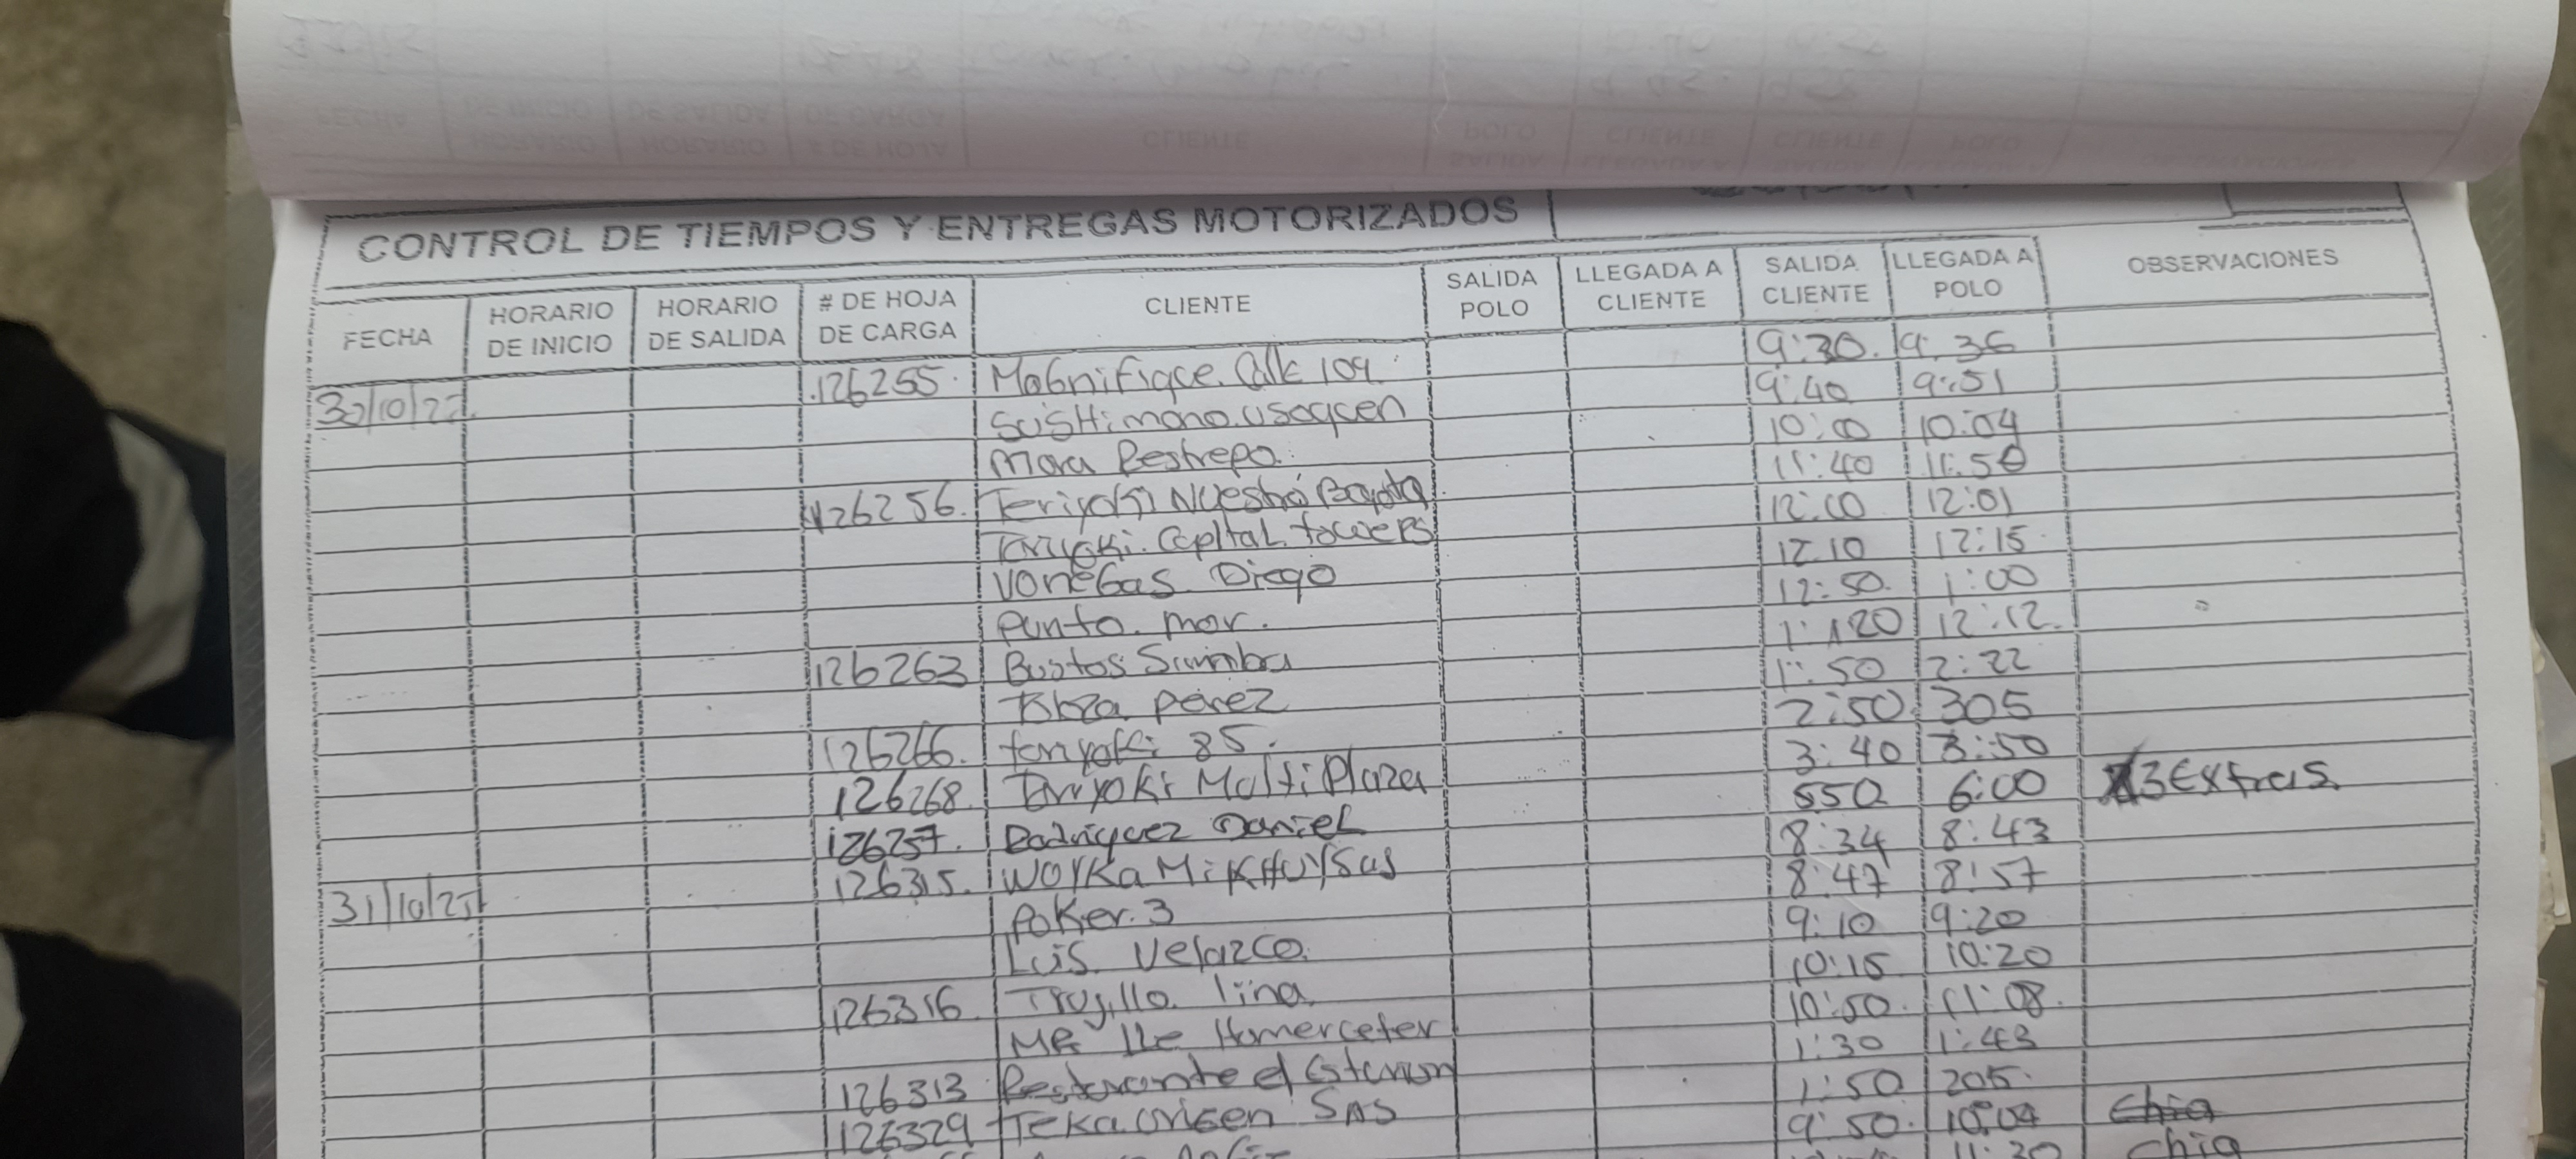 CONTROL DE TIEMPOS Y ENTREGAS MOTORIZADOS
FECHA HORARIO DE INICIO HORARIO DE SALIDA # DE HOJA DE CARGA CLIENTE SALIDA POLO LLEGADA A CLIENTE SALIDA CLIENTE LLEGADA A POLO OBSERVACIONES
30/10/2 126255 Magnifique Calle 109 9:30 9:36
SusHimono Usaquen 9:40 9:51
Mora Restrepo 10:00 10:04
126256 Teriyaki Nuestro Bogota 11:40 11:50
Teriyaki Capital towers 12:00 12:01
Vonegas Diego 12:10 12:15
punto mar 12:50 1:00
126263 Bustos 1:20 12:12
perez 1:50 2:22
126266 teriyaki 85 2:50 305
126268 Teriyaki MultiPlaza 3:40 3:50
126257 Rodriguez Daniel 550 6:00 3 Extras
31/10/25 126315 WOYKa MiKHUYSas 8:34 8:43
Poker 3 8:47 8:57
Luis Velazco 9:10 9:20
126316 Trujillo lina 10:15 10:20
Homerceter 10:50 11:08
126313 Restaurante el 1:30 1:43
126329 Teka Origen SAS 1:50 205
9:50 10:04 Chia
11:30 Chia